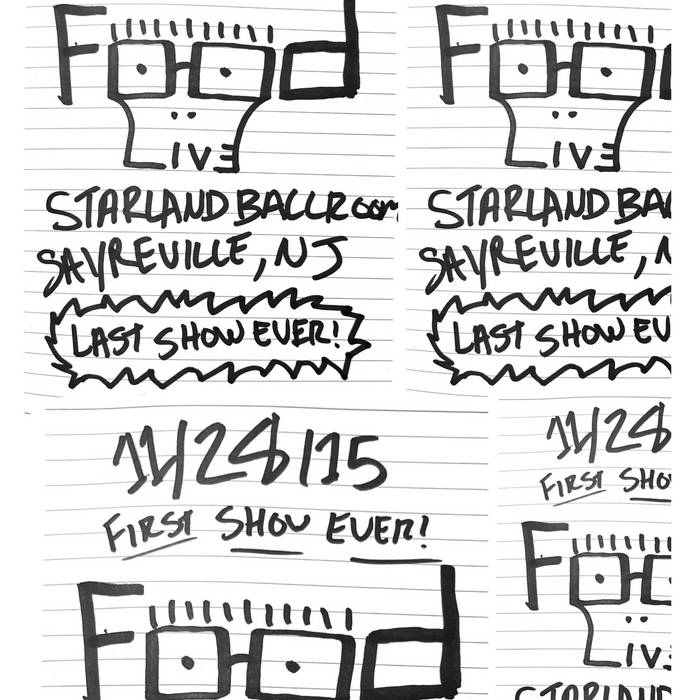 Food
LIVE
STARLAND BALLROOM
SAYREVILLE, NJ
LAST SHOW EVER!
Foo
LIVE
STARLAND BA
SAYREVILLE, N
LAST SHOW EV
11/28/15
FIRST SHOW EVER!
Food
11/28
FIRST SHO
Fo
LIVE
STARLAND